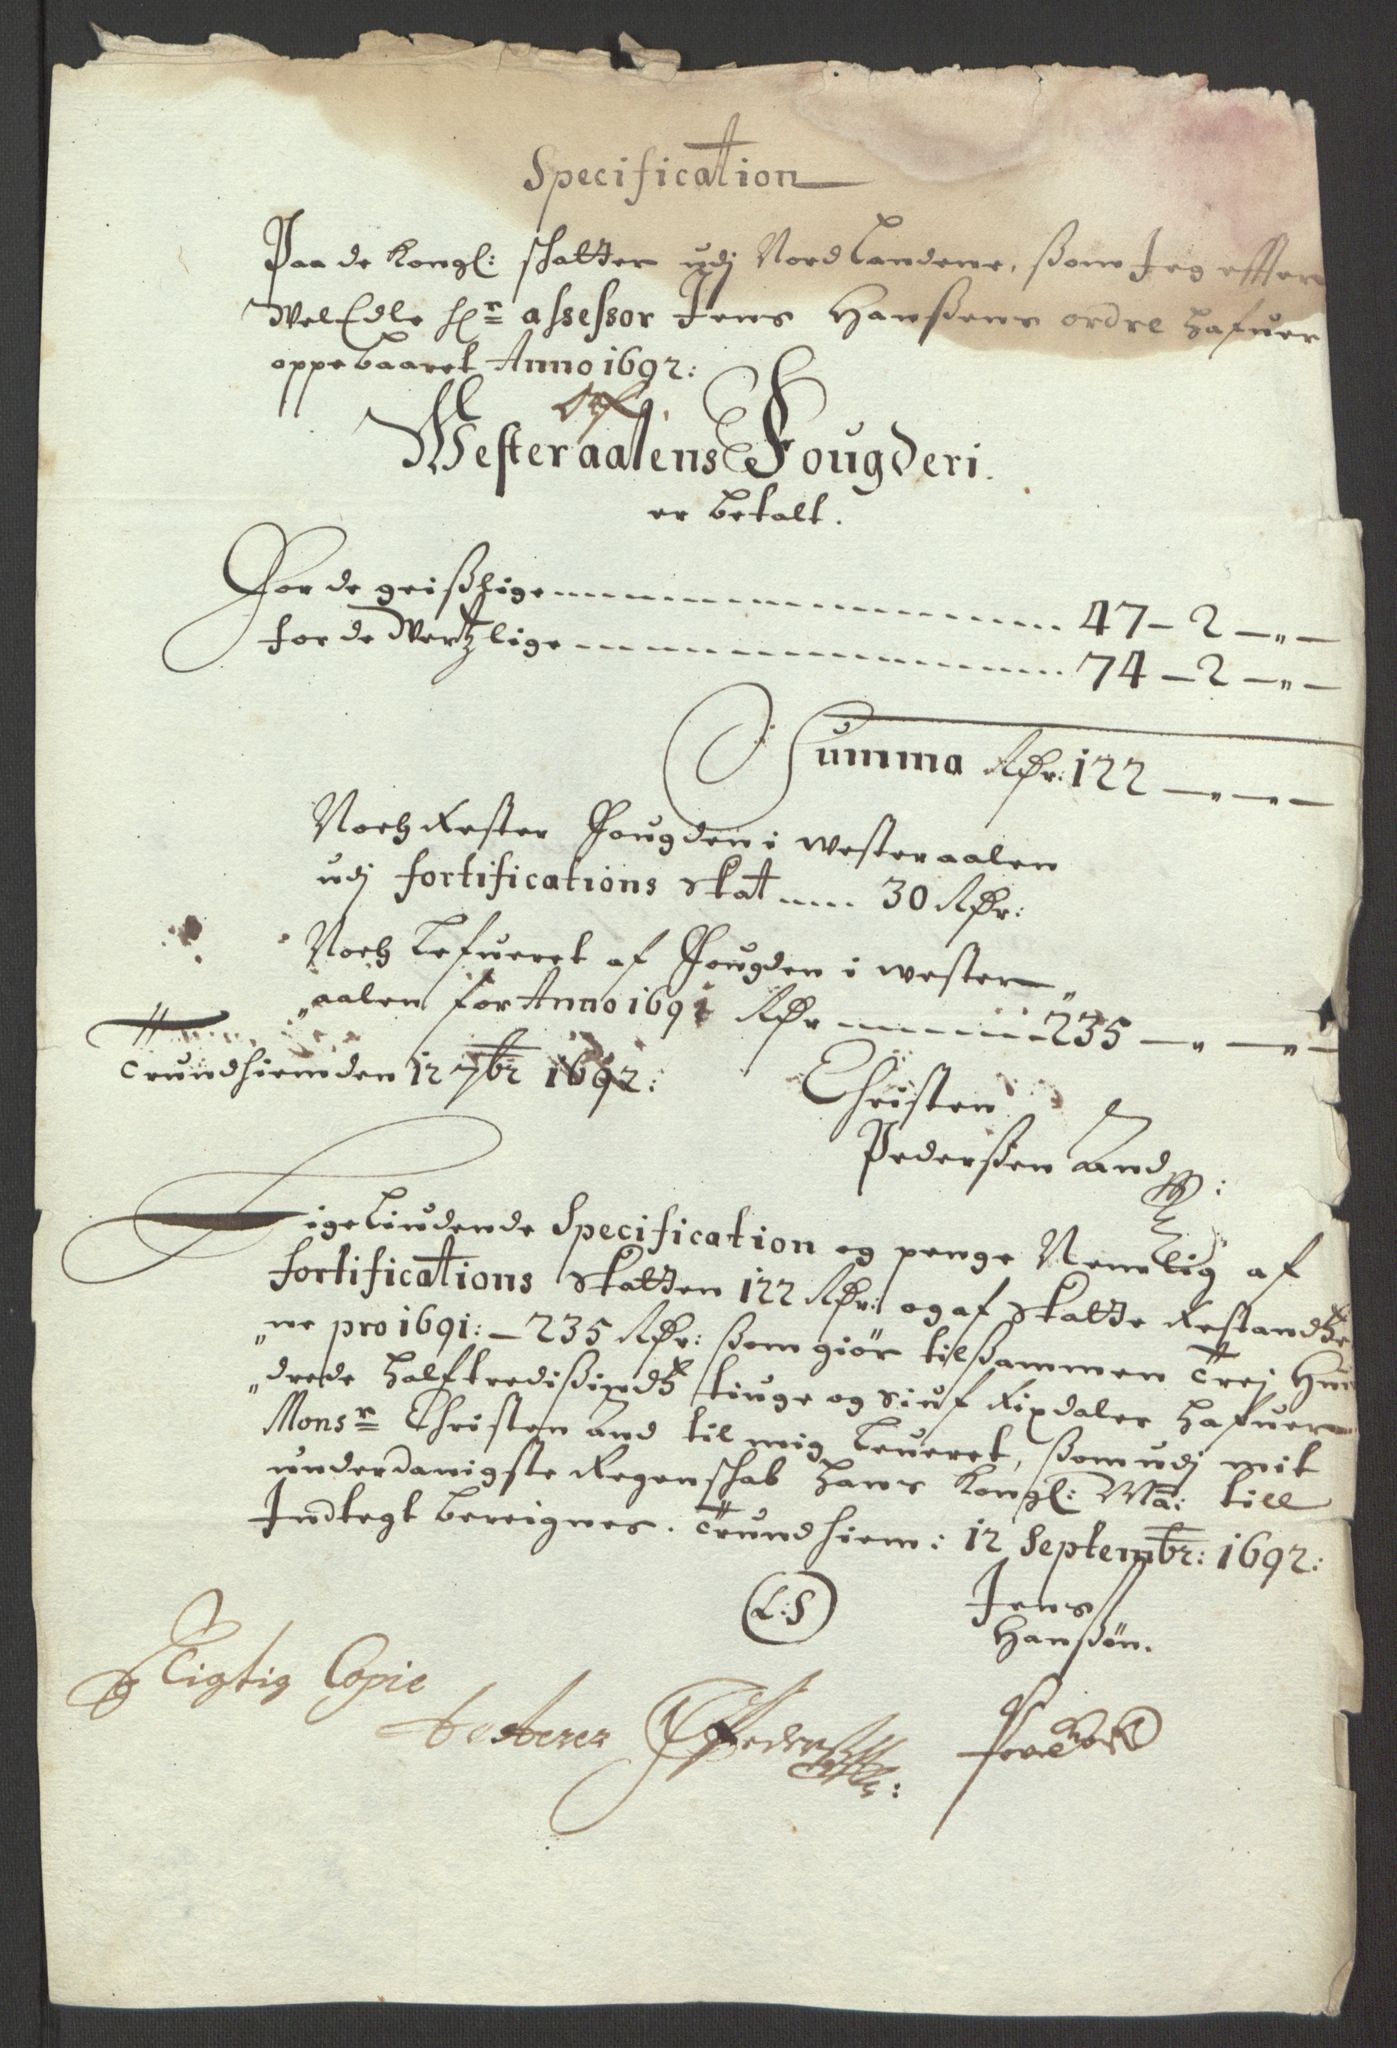 Specification
Paa de Kongl: schatter udj Nordlandene, ßom Jeg effter
WelEdle Hr assessor Jens Hanßens ordre hafuer
oppebaaret Anno 1692:
Af
Westeraalens Fougderi.
er betalt.
For de geistlige 47 - 2 - " -
for de Wertzlige 74 - 2 - " -
Summa Rdr: 122 - " - " -
Noch Rester Fougden i westeraalen
udj fortifications skat 30 Rdr:
Noch Lefueret af Fougden i wester„
„aalen for Anno 1691 Rdr 235 - " - " -
Trundhiem den 12 7br 1692:
Christen
Pederßen Aand
Ligeliudende Specification og penge Nemlig af
fortifications skatten 122 Rdr: og af skatte Restandtze
„ne pro 1691: - 235 Rdr: ßom giør tilßammen Trej Hun
„drede halftredißindtz tiuge og siuf Rixdaler hafuer
Monsr Christen And til mig leueret, ßom udj mit
underdanigste Regenschab hans Kongl: Ma: till
Indtegt bereignes. Trundhiem: 12 Septembr: 1692:
L:S
Jens
Hanßøn.
Rigtig Copie
testerer Pederß